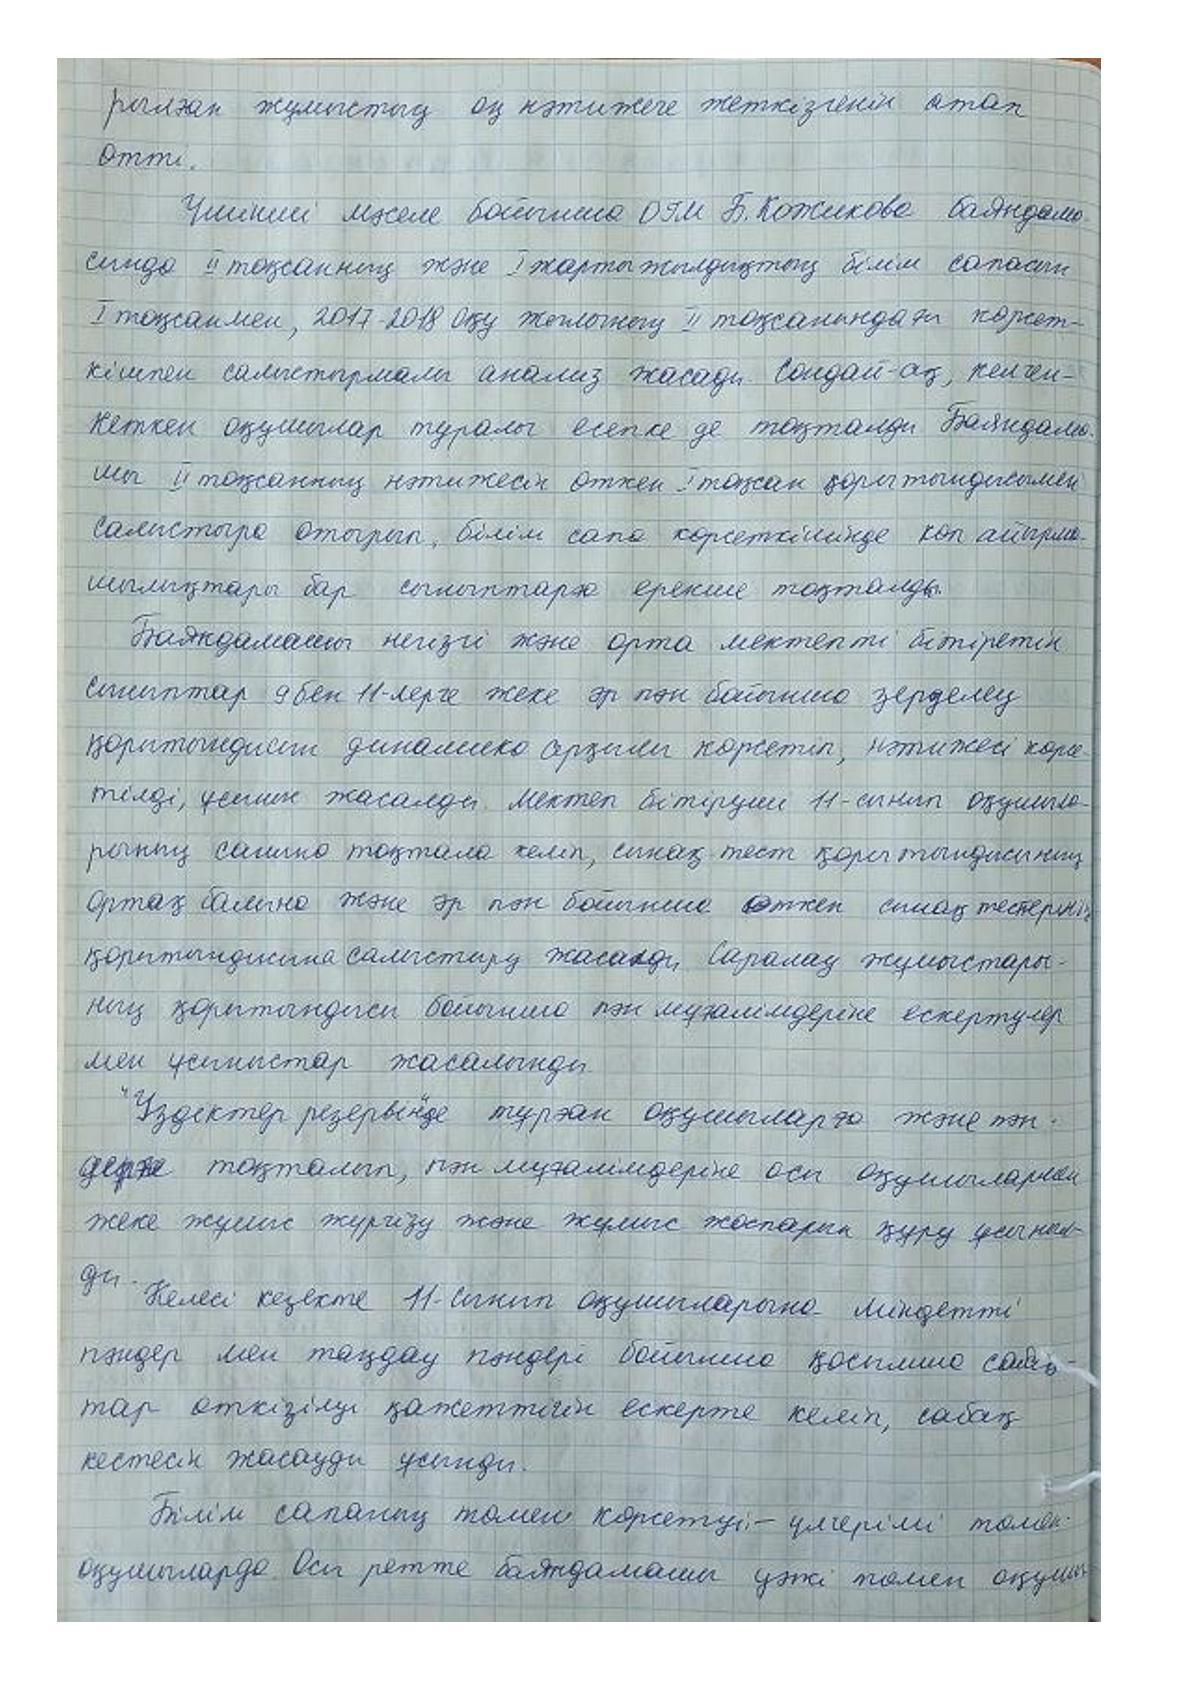 рылған жұмыстың оң нәтижеге жеткізгенін атап
өтті.
Үшінші мәселе бойынша ОІМ Б.Кожикова баяндама-
сында II тоқсанның және I жартыжылдықтың білім сапасын
I тоқсанмен, 2017-2018 оқу жылының II тоқсанындағы көрсет-
кішпен салыстырмалы анализ жасады. Сондай-ақ, келген-
кеткен оқушылар туралы есепке де тоқталды. Баяндама-
шы II тоқсанның нәтижесін өткен I тоқсан қорытындысымен
салыстыра отырып, білім сапа көрсеткішінде көп айырма-
шылықтары бар сыныптарға ерекше тоқталды.
Баяндамашы негізгі және орта мектепті бітіретін
сыныптар 9 бен 11-лерге жеке әр пән бойынша зерделеу
қорытындысын динамика арқылы көрсетіп, нәтижесі көрсе-
тілді, ұсыныс жасалды. Мектеп бітіруші 11-сынып оқушыла-
рының санына тоқтала келіп, сынақ тест қорытындысының
ортақ балына және әр пән бойынша өткен сынақ тестерінің
қорытындысына салыстыру жасалды. Саралау жұмыстары-
ның қорытындысы бойынша пән мұғалімдеріне ескертулер
мен ұсыныстар жасалынды.
"Үздіктер резервінде" тұрған оқушыларға және пән-
дерге тоқталып, пән мұғалімдеріне осы оқушылармен
жеке жұмыс жүргізу және жұмыс жоспарын құру ұсыныл-
ды.
Келесі кезекте 11-сынып оқушыларына міндетті
пәндер мен таңдау пәндері бойынша қосымша сабақ-
тар өткізілуі қажеттігін ескерте келіп, сабақ
кестесін жасауды ұсынды.
Білім сапаның төмен көрсетуі – үлгерімі төмен
оқушыларда. Осы ретте баяндамашы үлгі төмен оқушы-